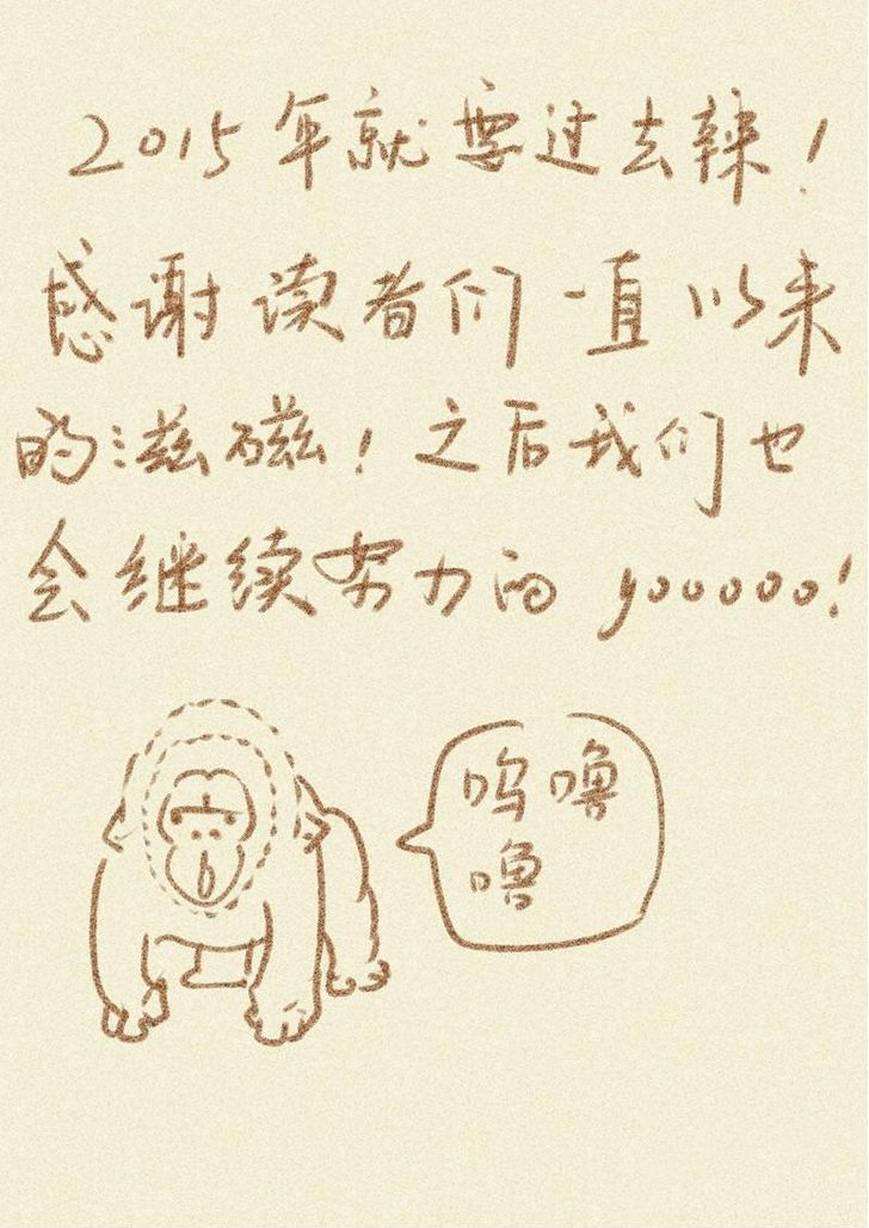 2015年就要过去辣!
感谢读者们一直以来
的滋磁!之后我们也
会继续努力的 yooooo!
呜噜
噜